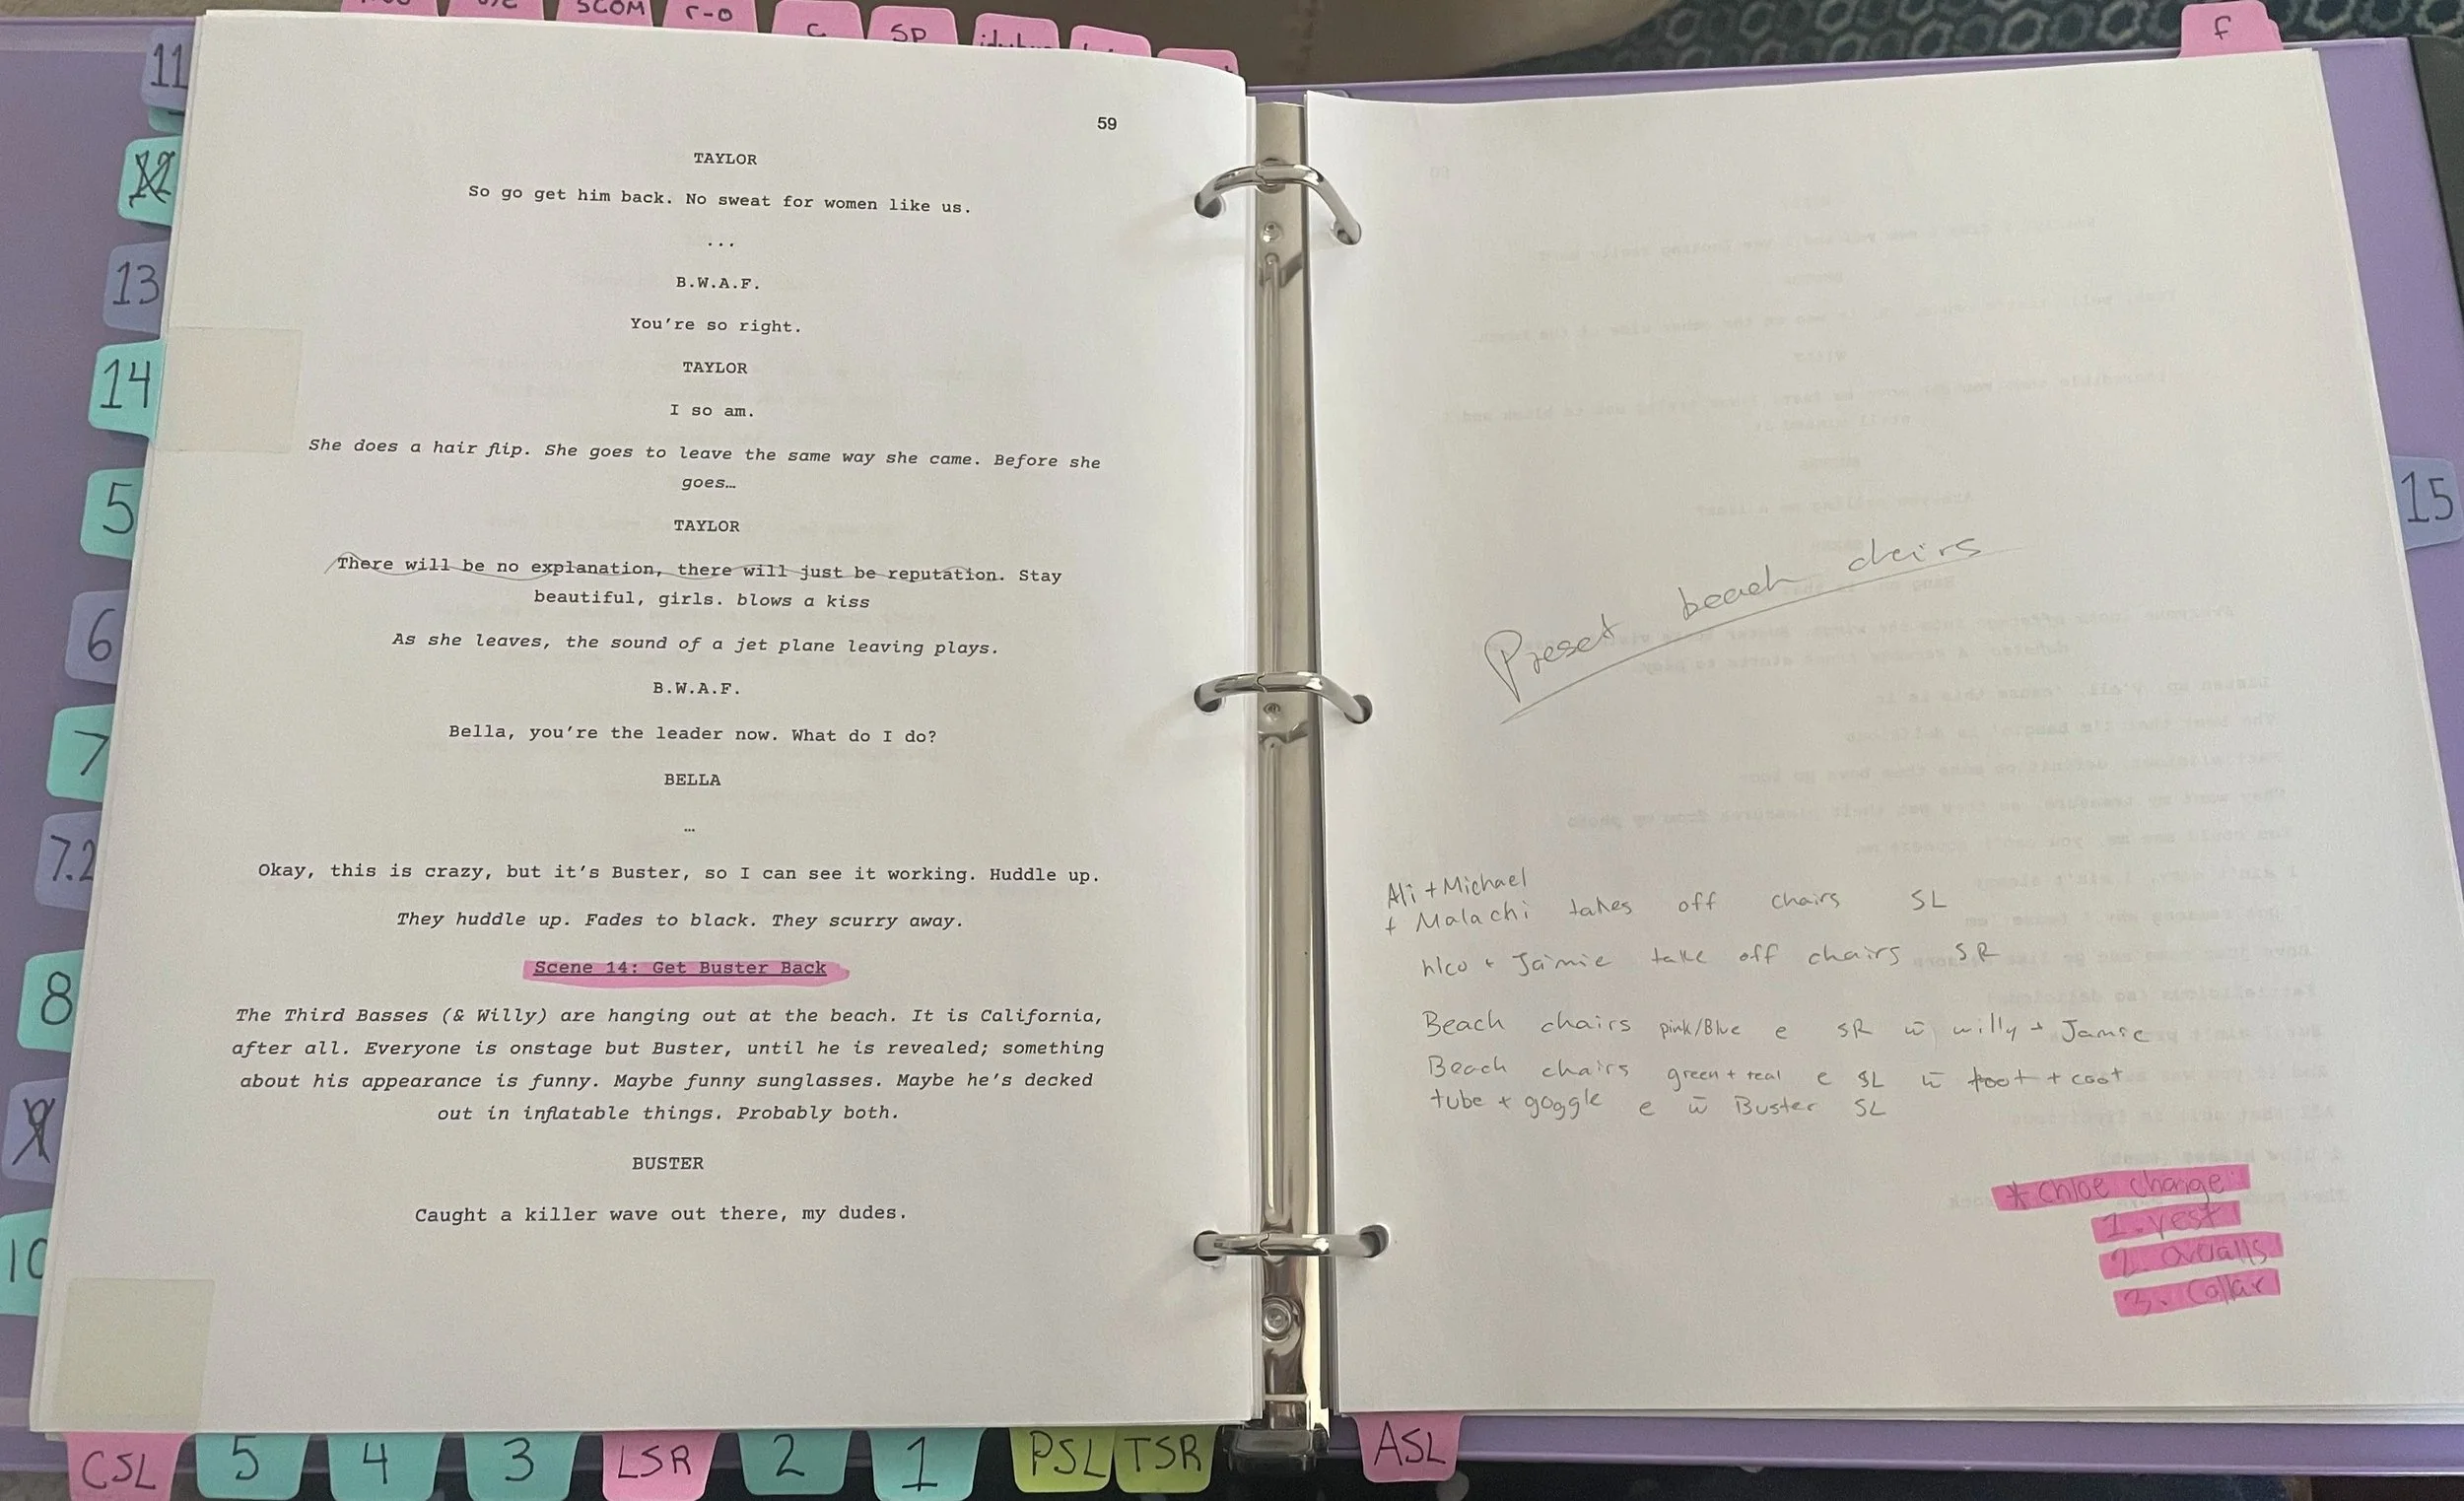 SCOM
r-o
C
SP
f
11
12
13
14
5
6
7
7.2
8
9
10
59
TAYLOR
So go get him back. No sweat for women like us.
...
B.W.A.F.
You're so right.
TAYLOR
I so am.
She does a hair flip. She goes to leave the same way she came. Before she
goes…
TAYLOR
There will be no explanation, there will just be reputation. Stay
beautiful, girls. blows a kiss
As she leaves, the sound of a jet plane leaving plays.
B.W.A.F.
Bella, you're the leader now. What do I do?
BELLA
…
Okay, this is crazy, but it's Buster, so I can see it working. Huddle up.
They huddle up. Fades to black. They scurry away.
Scene 14: Get Buster Back
The Third Basses (& Willy) are hanging out at the beach. It is California,
after all. Everyone is onstage but Buster, until he is revealed; something
about his appearance is funny. Maybe funny sunglasses. Maybe he's decked
out in inflatable things. Probably both.
BUSTER
Caught a killer wave out there, my dudes.
Preset beach chairs
Ali + Michael
+ Malachi takes off chairs SL
nico + Jaimie take off chairs SR
Beach chairs pink/Blue e SR w̄ willy + Jamie
Beach chairs green + teal e SL w̄ toot + coot
tube + goggle e w̄ Buster SL
* Chloe change
1. vest
2. overalls
3. Collar
15
CSL
5
4
3
LSR
2
1
PSL
TSR
ASL